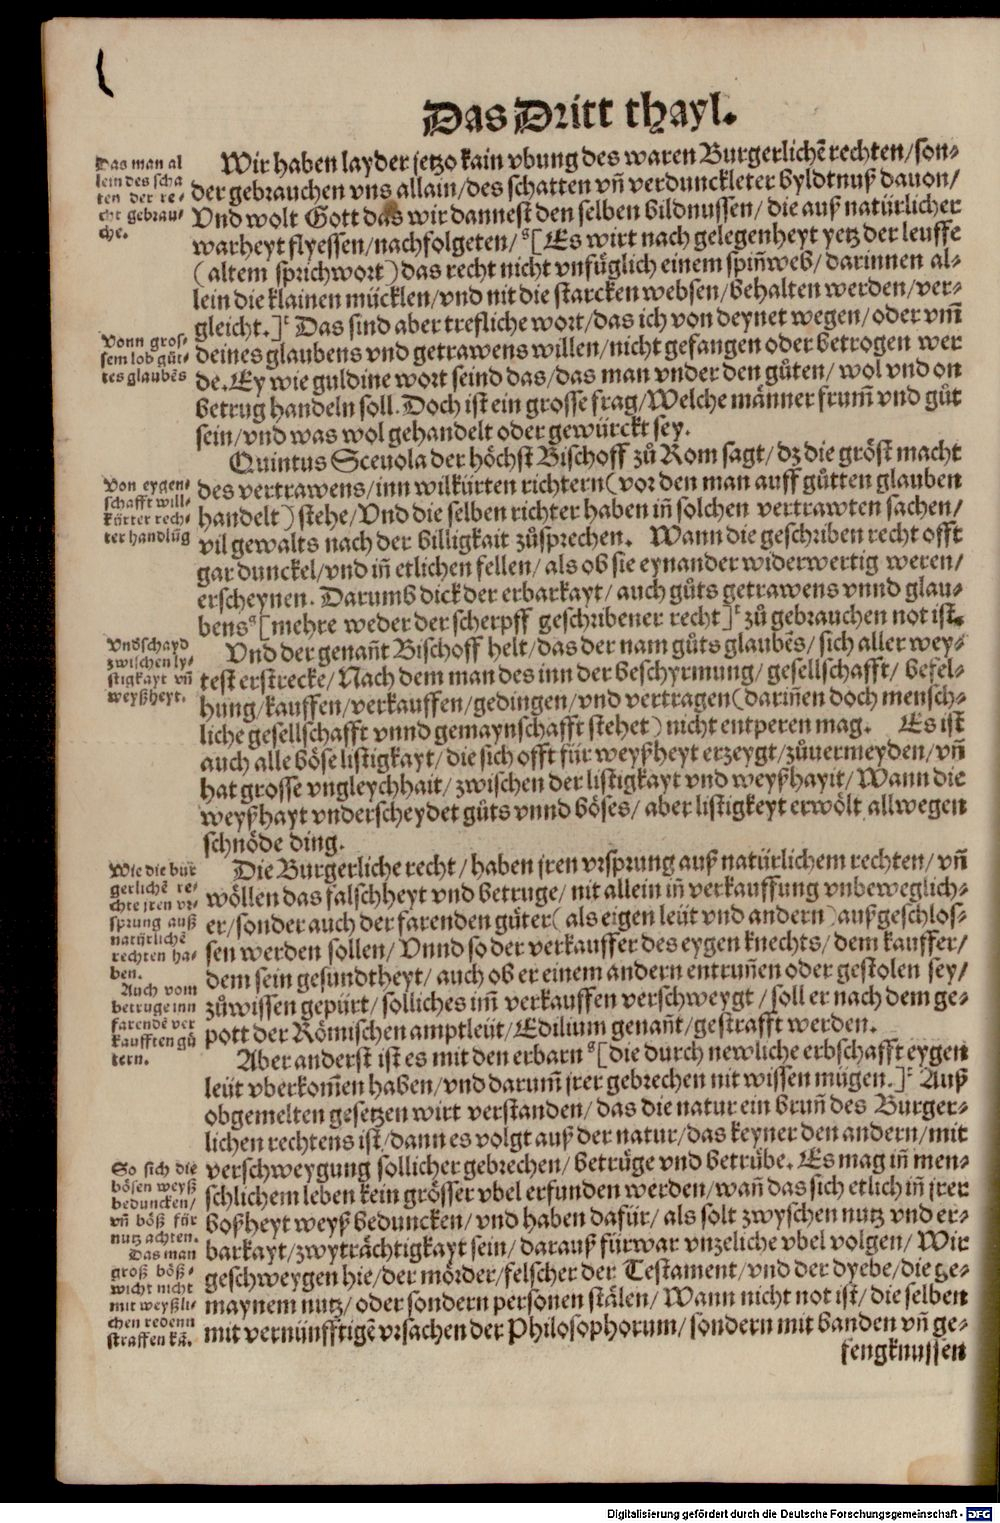 Das Dritt thayl.
Das man al
lein des scha
ten der re-
cht gebrau-
che.
Wir haben layder jetzo kain vbung des waren Burgerlichē rechten/ son-
der gebrauchen vns allain/ des schatten vn̄ verdunckleter byldtnuß dauon/
Vnd wolt Gott das wir dannest den selben bildnussen/ die auß natürlicher
warheyt flyessen/ nachfolgeten/ ᵍ[Es wirt nach gelegenheyt yetz der leuffe
(altem sprichwort) das recht nicht vnfüglich einem spin̄web/ darinnen al-
lein die klainen mücklen/ vnd nit die starcken websen/ behalten werden/ ver-
gleicht.]ᵗ Das sind aber trefliche wort/ das ich von deynet wegen/ oder vm̄
Vonn gros-
sem lob gůt-
tes glaubēs
deines glaubens vnd getrawens willen/ nicht gefangen oder betrogen wer
de. Ey wie guldine wort seind das/ das man vnder den gůten/ wol vnd on
betrug handeln soll. Doch ist ein grosse frag/ Welche männer frum̄ vnd gůt
sein/ vnd was wol gehandelt oder gewürckt sey.
Quintus Sceuola der höchst Bischoff zů Rom sagt/ dz die gröst macht
Von eygen-
schafft will-
kürter rech-
ter handlūg
des vertrawens/ inn wilkürten richtern (vor den man auff gůtten glauben
handelt) stehe/ Vnd die selben richter haben in̄ solchen vertrawten sachen/
vil gewalts nach der billigkait zůsprechen. Wann die geschriben recht offt
gar dunckel/ vnd in̄ etlichen fellen/ als ob sie eynander widerwertig weren/
erscheynen. Darumb dick der erbarkayt/ auch gůts getrawens vnnd glau-
bens ᵍ[mehre weder der scherpff geschribener recht]ᵗ zů gebrauchen not ist.
Vndschayd
zwischen ly-
stigkayt vn̄
weyßheyt.
Vnd der genan̄t Bischoff helt/ das der nam gůts glaubēs/ sich aller wey-
test erstrecke/ Nach dem man des inn der beschyrmung/ gesellschafft/ befel-
hung/ kauffen/ verkauffen/ gedingen/ vnd vertragen (darin̄en doch mensch-
liche gesellschafft vnnd gemaynschafft stehet) nicht entperen mag. Es ist
auch alle böse listigkayt/ die sich offt für weyßheyt erzeygt/ zůuermeyden/ vn̄
hat grosse vngleychhait/ zwischen der listigkayt vnd weyßhayit/ Wann die
weyßhayt vnderscheydet gůts vnnd böses/ aber listigkeyt erwölt allwegen
schnöde ding.
Wie die bur
gerlichē re-
chte jren vr-
sprung auß
natürlichē
rechten ha-
ben.
Die Burgerliche recht/ haben jren vrsprung auß natürlichem rechten/ vn̄
wöllen das falschheyt vnd betruge/ nit allein in̄ verkauffung vnbeweglich-
er/ sonder auch der farenden güter (als eigen leüt vnd andern) außgeschlos-
sen werden sollen/ Vnnd so der verkauffer des eygen knechts/ dem kauffer/
dem sein gesundtheyt/ auch ob er einem andern entrun̄en oder gestolen sey/
Auch vom
betruge inn
farendē ver
kaufften gů
tern.
zůwissen gepürt/ solliches im̄ verkauffen verschweygt/ soll er nach dem ge-
pott der Römischen amptleüt/ Edilium genan̄t/ gestrafft werden.
Aber anderst ist es mit den erbarn ᵍ[die durch newliche erbschafft eygen
leüt vberkom̄en haben/ vnd darum̄ jrer gebrechen nit wissen mügen.]ᵗ Auß
obgemelten gesetzen wirt verstanden/ das die natur ein brun̄ des Burger-
lichen rechtens ist/ dann es volgt auß der natur/ das keyner den andern/ mit
So sich die
bösen weyß
beduncken/
vn̄ böß für
nutz achten.
verschweygung sollicher gebrechen/ betrüge vnd betrübe. Es mag in̄ men-
schlichem leben kein grösser vbel erfunden werden/ wan̄ das sich etlich in̄ jrer
boßheyt weyß beduncken/ vnd haben dafür/ als solt zwyschen nutz vnd er-
barkayt/ zwyträchtigkayt sein/ darauß fürwar vnzeliche vbel volgen/ Wir
Das man
groß böß-
wicht nicht
mit weyßli-
chen redenn
straffen kā.
geschweygen hie/ der mörder/ felscher der Testament/ vnd der dyebe/ die ge-
maynem nutz/ oder sondern personen stälen/ Wann nicht not ist/ die selben
mit vernünfftigē vrsachen der Philosophorum/ sondern mit banden vn̄ ge-
fengknussen
Digitalisierung gefördert durch die Deutsche Forschungsgemeinschaft - DFG